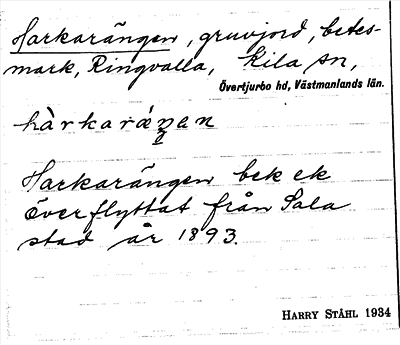 Harkarängen, gruvjord, betes-
mark, Ringvalla, Kila sn,
Övertjurbo hd, Västmanlands län.
hàrkaráŋen
Harkarängen bek ek
överflyttat från Sala
stad år 1893.
HARRY STÅHL 1934